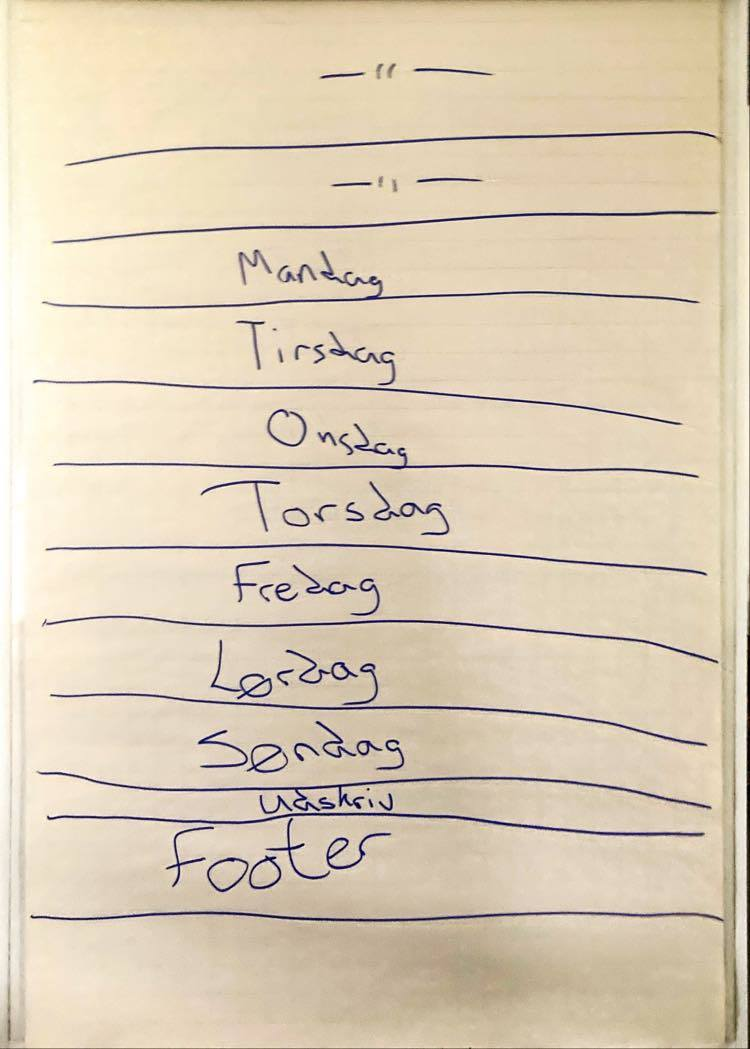 — " —
— " —
Mandag
Tirsdag
Onsdag
Torsdag
Fredag
Lørdag
Søndag
Udskriv
Footer